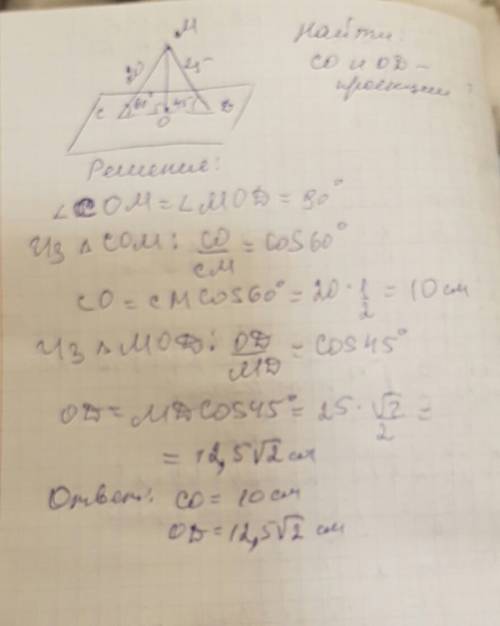 М
Найти:
CO и OD –
проекции ?
20
25
60°
45°
C
O
D
Решение:
∠COM = ∠MOD = 90°
Из △COM: CO/CM = cos60°
CO = CM cos60° = 20 · 1/2 = 10 см
Из △MOD: OD/MD = cos45°
OD = MD cos45° = 25 · √2/2 =
= 12,5√2 см
Ответ: CO = 10 см
OD = 12,5√2 см